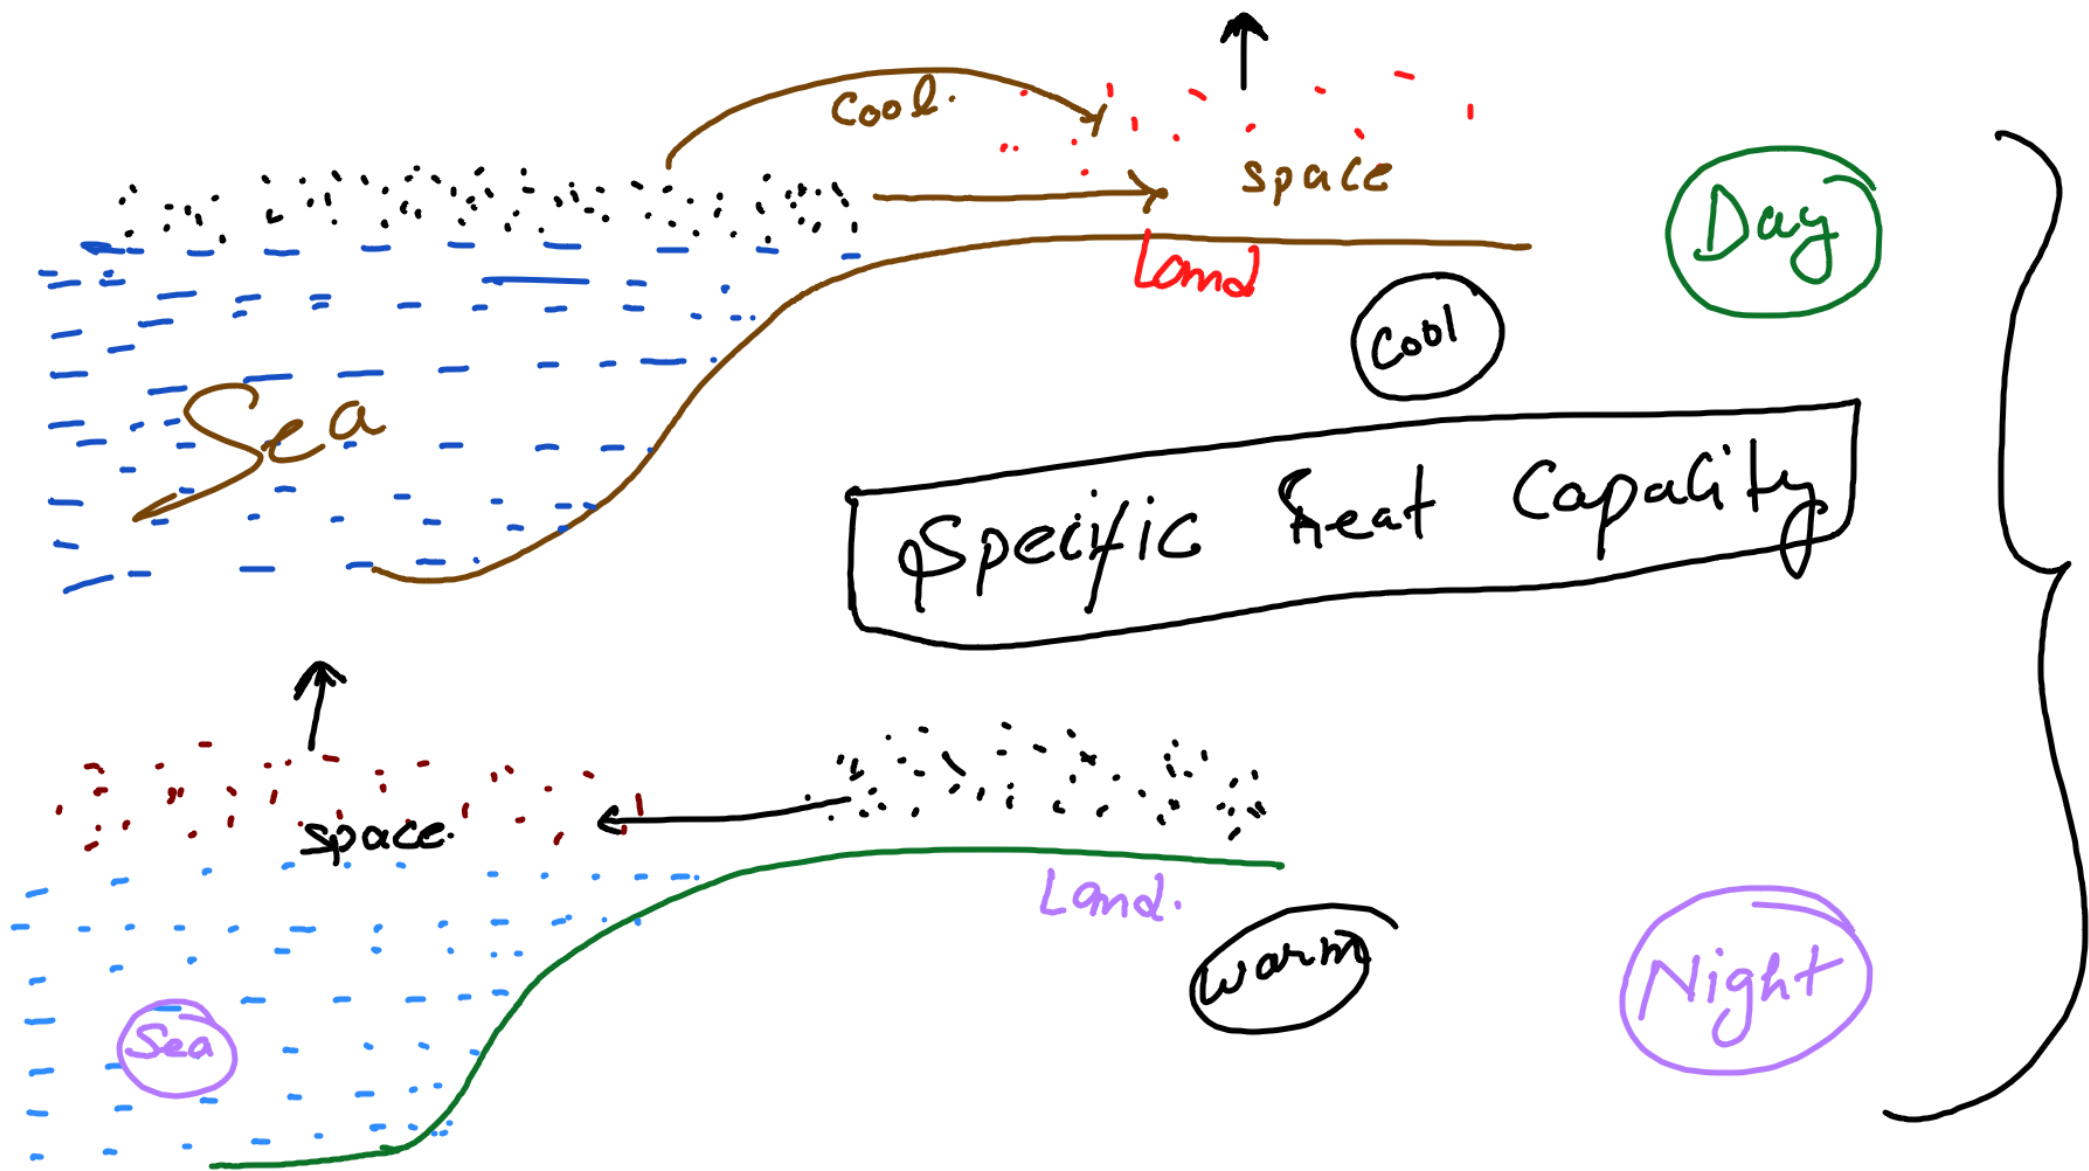 Cool.
space
Day
Land
Cool
Sea
Specific Heat Capacity
space.
Land.
Warm
Night
Sea